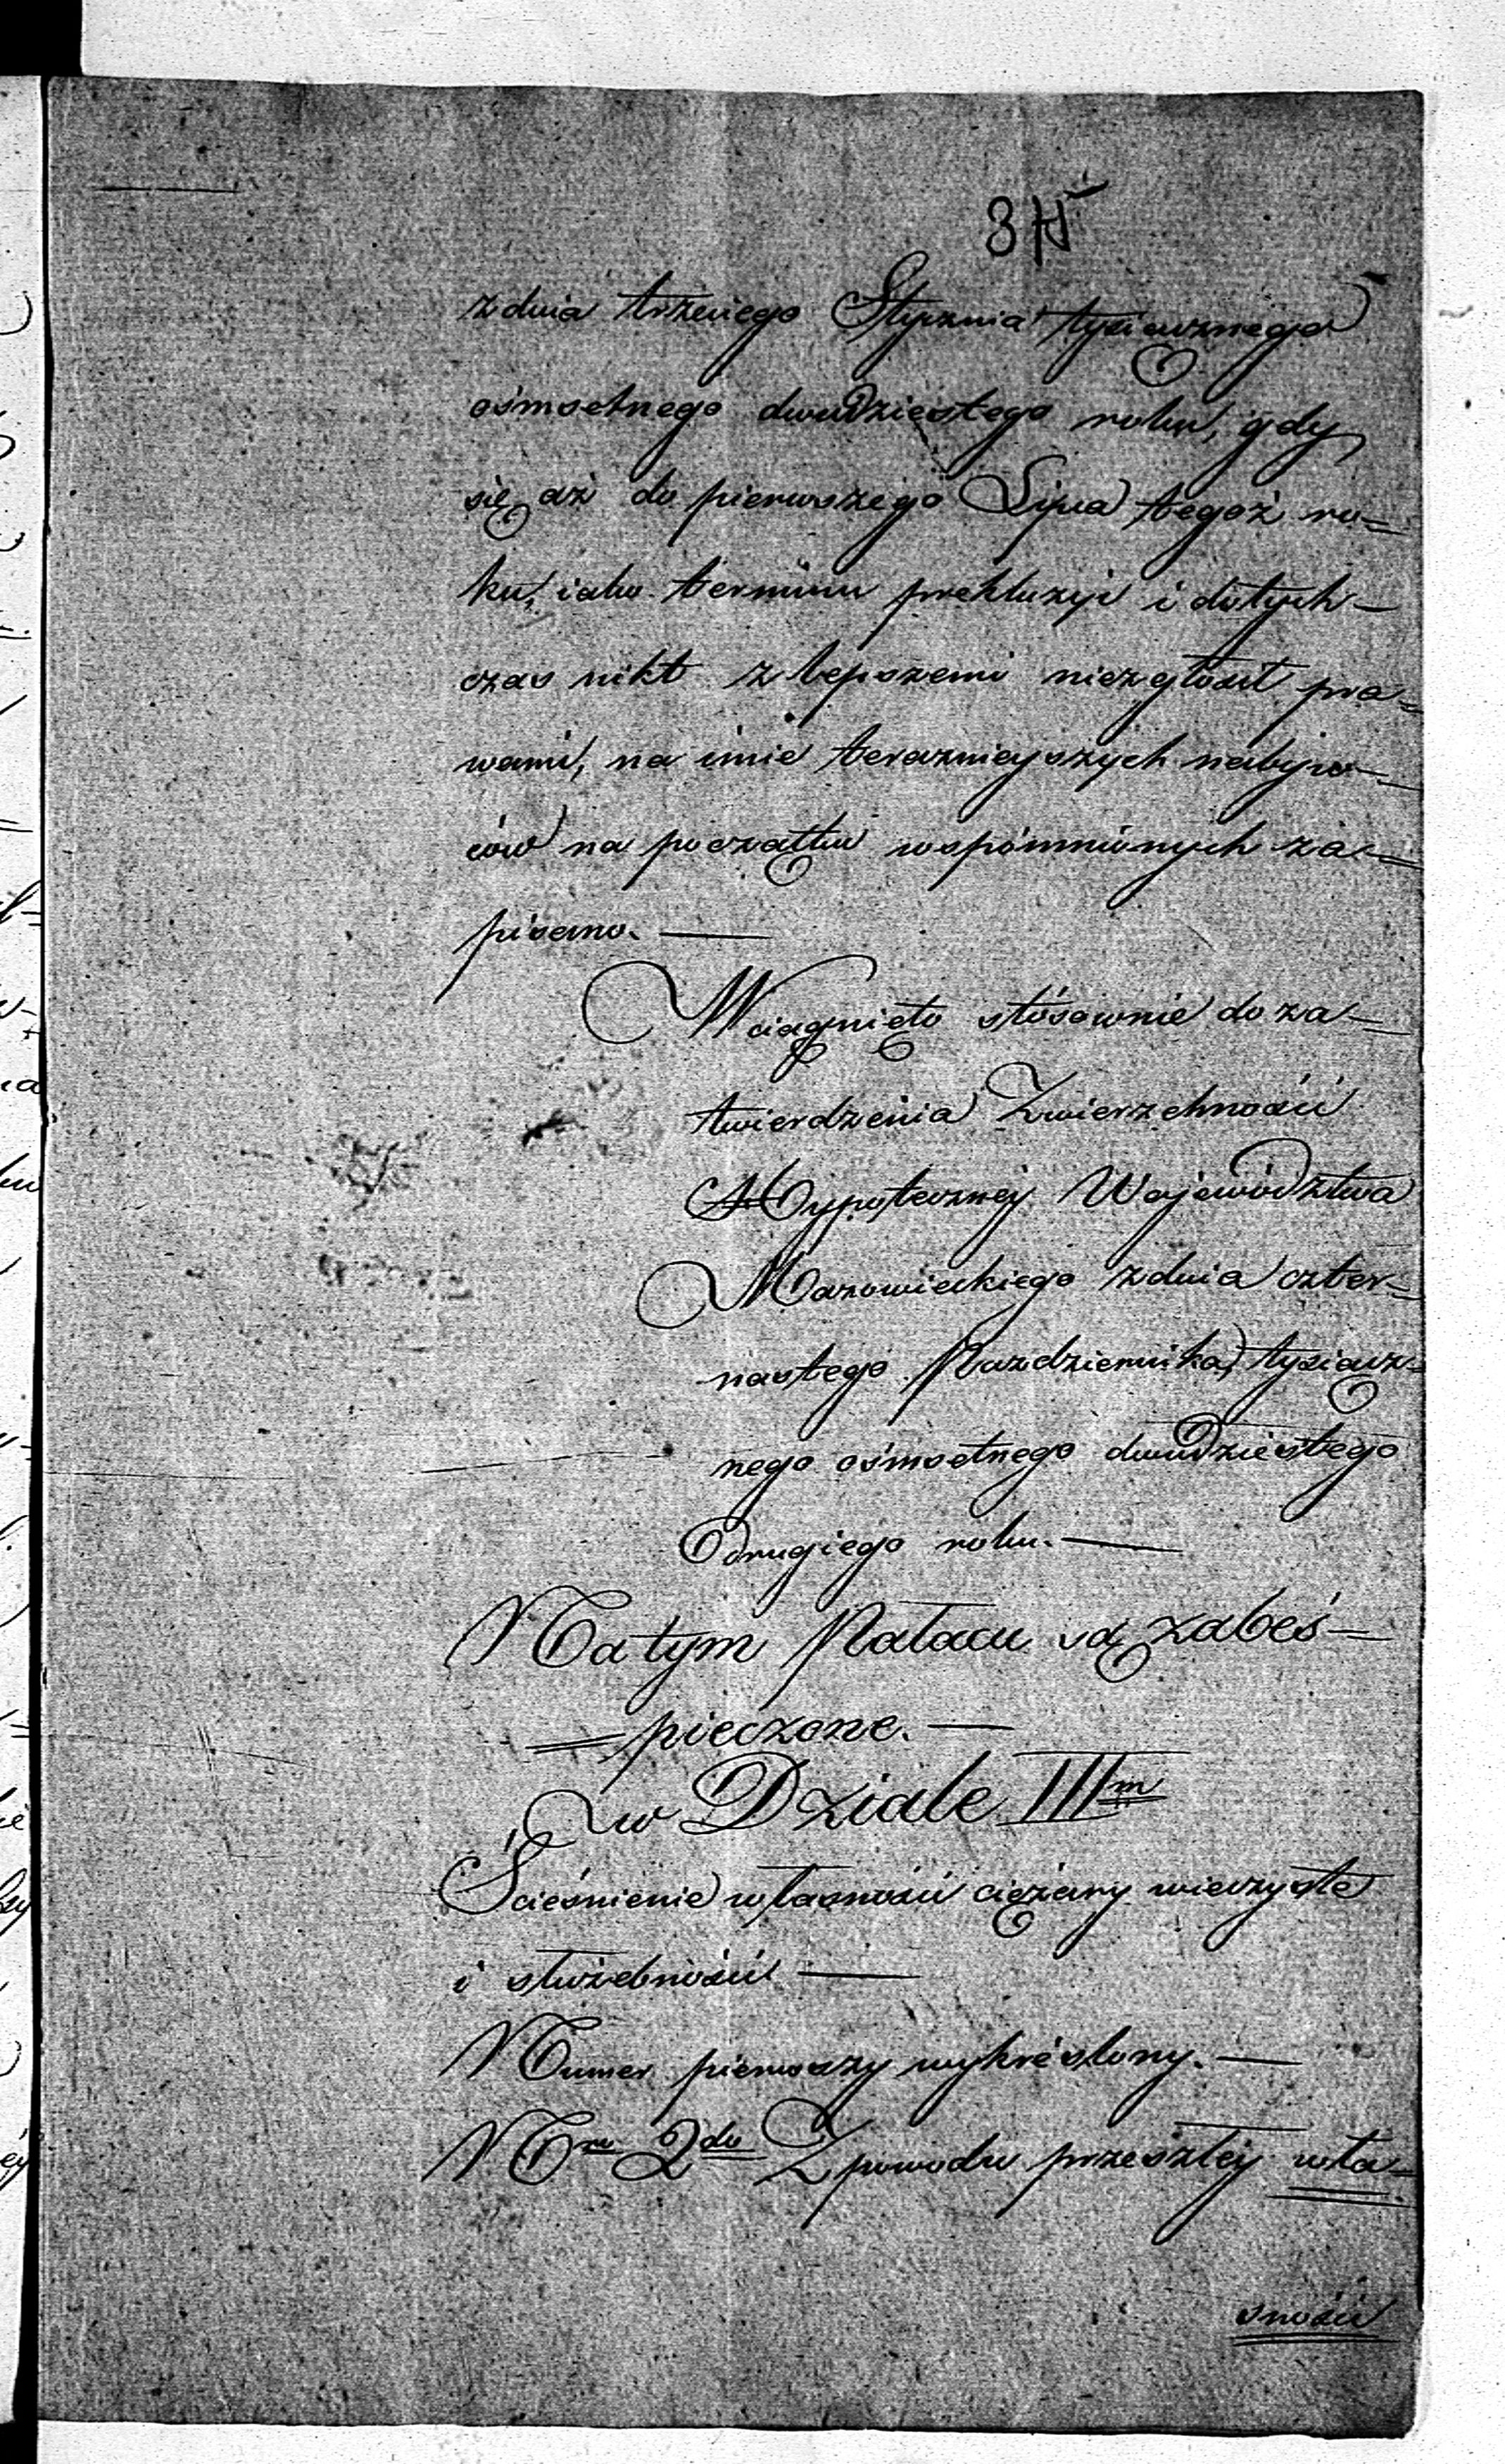 z dnia trzeciego Stycznia tysiącznego
ośmsetnego dwudziestego roku, gdy
się aż do pierwszego Lipca tegoż ro=
ku, iako terminu prekluzyi i dotych=
czas nikt z lepszemi niezgłosił pra=
wami, na imie teraznieyszych nabyw=
ców na początku wspómnionych za=
pisano. —
Wciągnięto stósownie do za=
twierdzenia Zwierzchności
Hypoteczney Województwa
Mazowieckiego z dnia czter=
nastego Pazdziernika tysiącz=
nego ośmsetnego dwudziestego
drugiego roku. —
Na tym Pałacu są zabeś=
=pieczone. —
w Dziale III<sup>m</sup>
Ścieśnienie własności ciężary wieczyste
i służebności —
Numer pierwszy wykréslony. —
N<sup>ro</sup> 2<sup>do</sup> Z powodu przeszłey wła=
sności